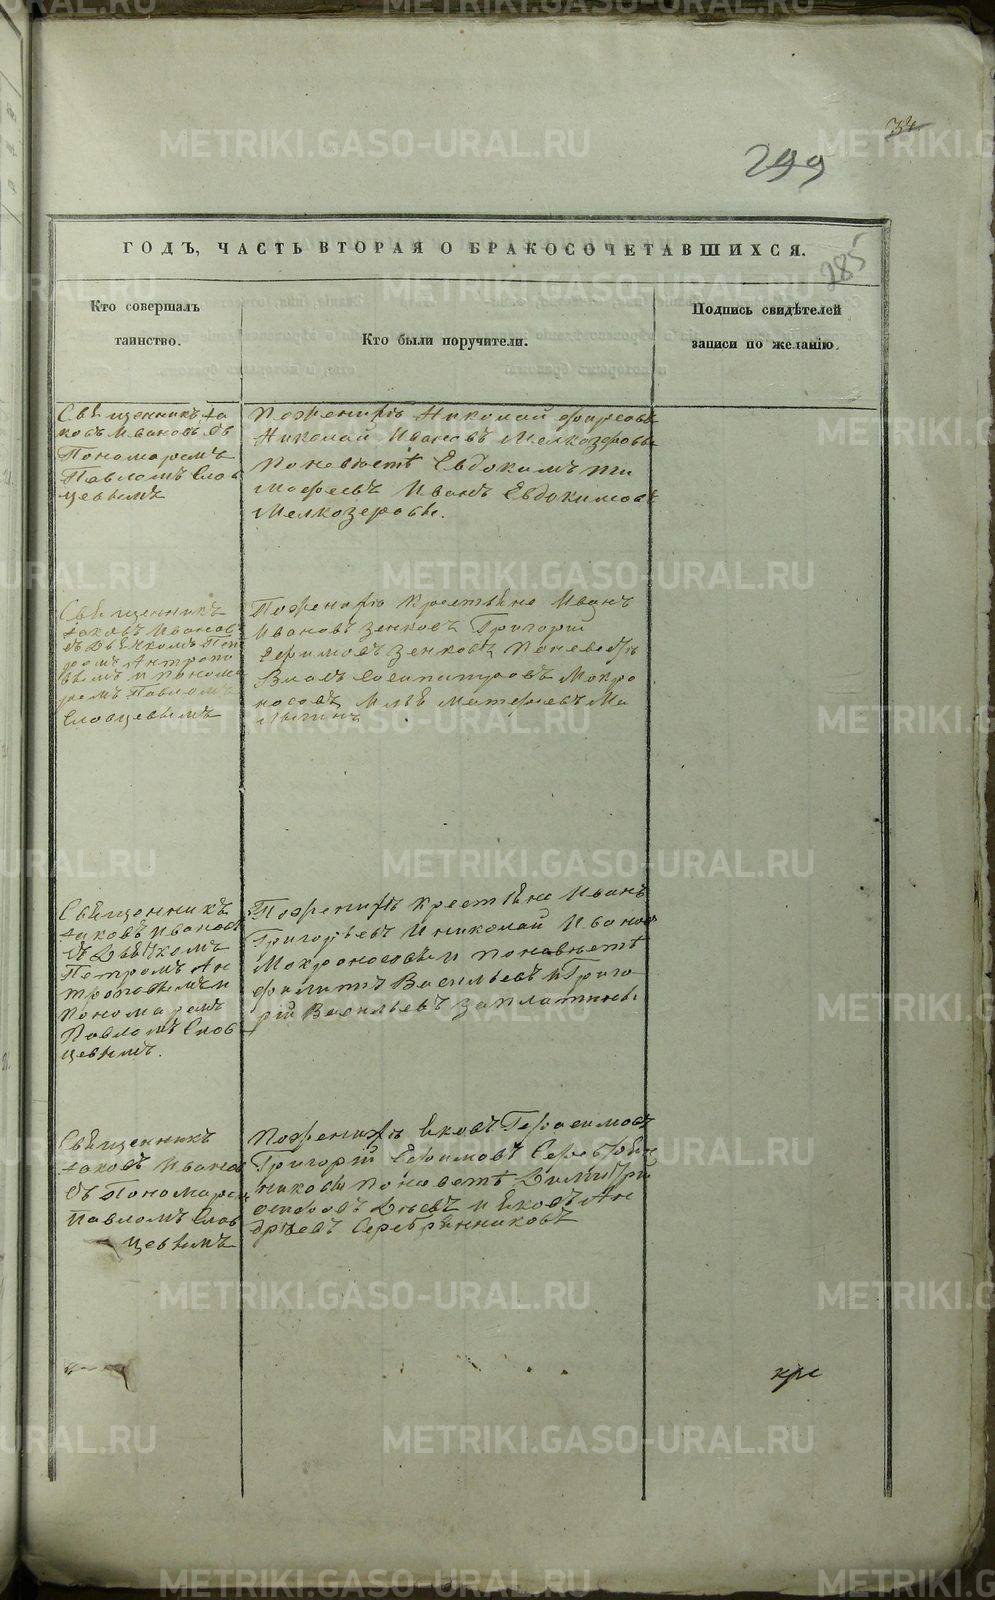 34
299
285
ГОДЪ, ЧАСТЬ ВТОРАЯ О БРАКОСОЧЕТАВШИХСЯ.
Кто совершалъ
таинство.
Кто были поручители.
Подпись свидѣтелей
записи по желанію.
Священникъ Іа
ковъ Ивановъ съ
Пономаремъ
Павломъ Слов
цевымъ
Поженихѣ Николай Фирсовъ
Николай Ивановъ Мелкозеровы
Поневѣстѣ Евдокимъ Ти
мофеевъ Иванъ Евдокимовъ
Мелкозеровы.
Священникъ
Іаковъ Ивановъ
съ Дьячкомъ Пет
ромъ Антропо
вымъ и Понома
ремъ Павломъ
Словцевымъ
Поженихѣ Крестьяне Иванъ
Ивановъ Зенковъ Григорій
Ефимовъ Зенковъ Поневѣстѣ
Мокро
носовъ Илья Матфіевъ Ма
лыгинъ
Священникъ
Іаковъ Ивановъ
съ Дьячкомъ
Петромъ Ан
троповымъ и
Пономаремъ
Павломъ Слов
цевымъ.
Поженихѣ крестьяне Иванъ
Григорьевъ и Николай Ивановъ
Мокроносовы и поневѣстѣ
Филипъ Васильевъ и Григо
рій Васильевъ Заплатины
Священникъ
Іаковъ Ивановъ
съ Пономаремъ
Павломъ Слов
цевымъ
Поженихѣ Яковъ Герасимовъ
Григорій Ефимовъ Серебрян
никовы поневѣстѣ Димитрій
и Яковъ Ан
дреевъ Серебрянниковъ
кре
METRIKI.GASO-URAL.RU